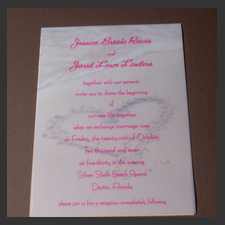 Jessica Brooke
and
Jarrid Lance
together with our parents
invite you to share the beginning
of
our new life together
when we exchange marriage vows
on Friday, the twenty-sixth of October
two thousand and seven
at five-thirty in the evening
Silver Shells Beach Resort
Destin, Florida
please join us for a reception immediately following